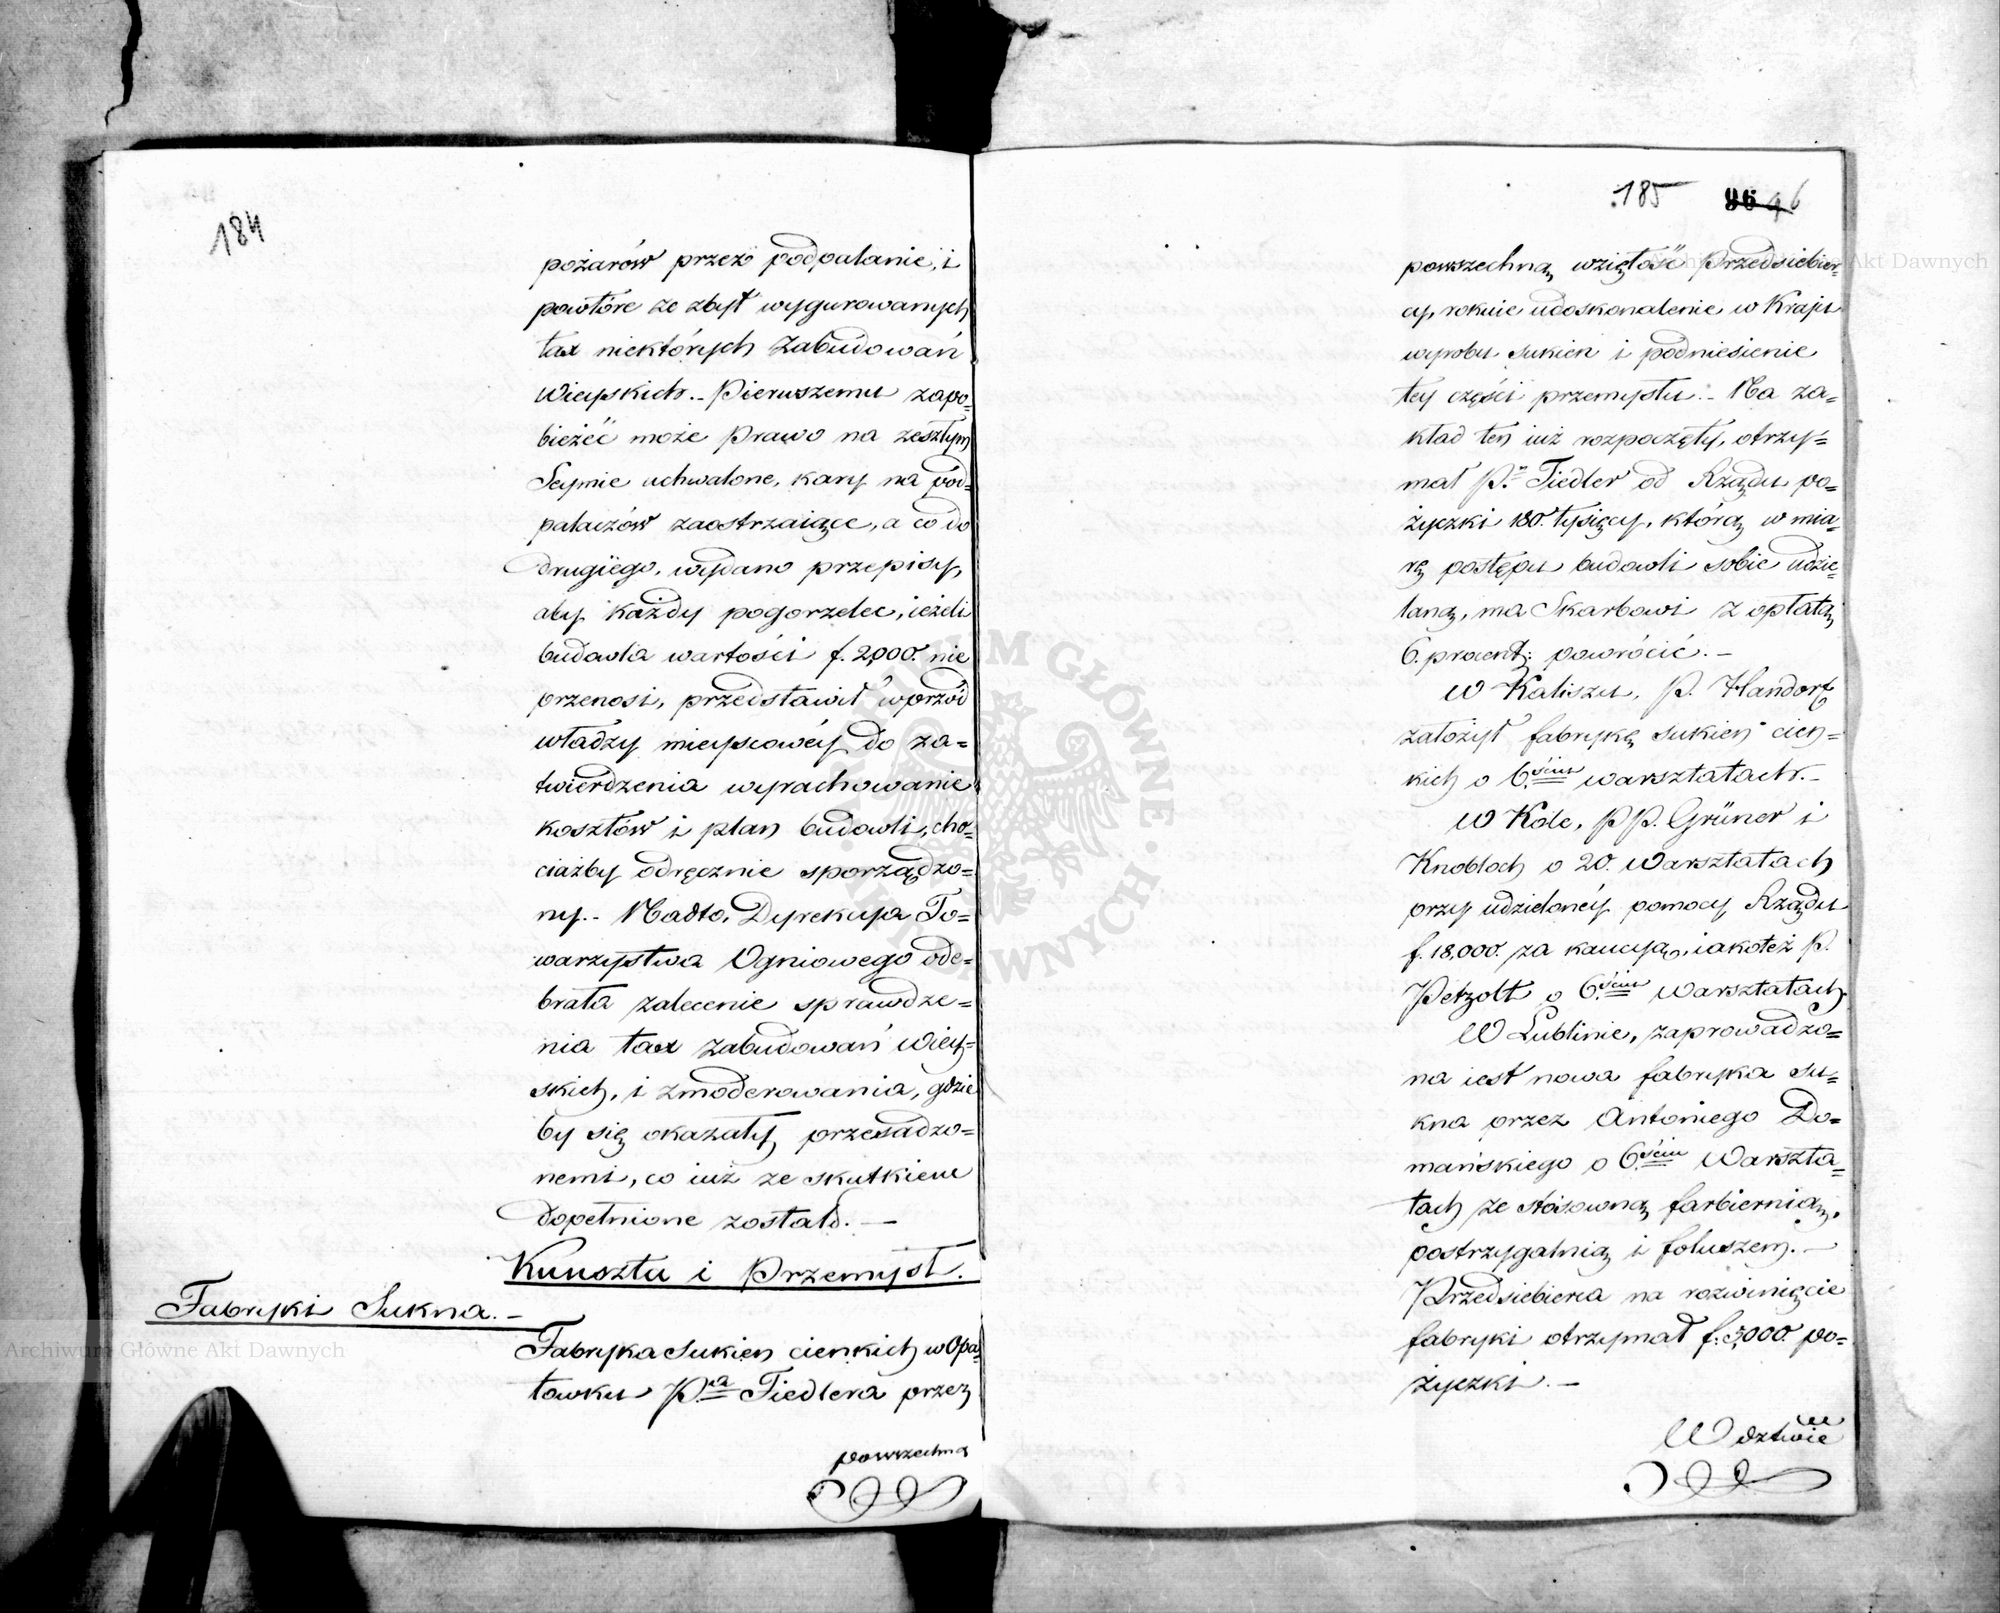 184
pożarów przez podpalanie, i
powtóre ze zbyt wygurowanych
tax niektórych Zabudowań
Wieyskich.- Pierwszemu zapo-
bieżeć może Prawo na zeszłym
Seymie uchwalone, kary na pod-
palaczów zaostrzaiące, a co do
drugiego, wydano przepisy,
aby każdy pogorzelec, ieżeli
budowla wartości f. 2,000. nie
przenosi, przedstawił wprzód
władzy mieyscowéy do za=
twierdzenia wyrachowanie
kosztów i plan budowli, cho-
ciażby odręcznie sporządzo=
ny.- Nadto, Dyrekcya To=
warzystwa Ogniowego ode=
brała zalecenie sprawdze=
nia tax zabudowań Wiey=
skich, i zmoderowania, gdzie
by się okazały przesadzo=
nemi, co iuż ze skutkiem
dopełnione zostało. —
Kunszta i Przemysł.
Fabryki Sukna.-
Fabryka Sukien cienkich w Opa=
towku P.na Fiedlera przez
powszechną
185 96 96
powszechną wziętość Przedsiebier-
cy, rokuie udoskonalenie w Kraju
wyrobu sukien i podniesienie
tey części przemysłu.- Na za=
kład ten iuż rozpoczęty, otrzy=
mał P.n Fiedler od Rządu po=
życzki 180. tysięcy, którą w mia=
rę postępu budowli sobie udzie=
laną, ma Skarbowi z opłatą
6. procent: powrócić.-
W Kaliszu, P. Handorf
założył fabrykę sukien cien=
kich o 6.ściu warsztatach.-
W Kole, PP. Grüner i
Knobloch o 20. Warsztatach
przy udzielonéy pomocy Rządu
f. 18,000. za kaucyą, iakoteż P.
Petzolt o 6.ściu warsztatach
W Lublinie, zaprowadzo=
na iest nowa fabryka su=
kna przez Antoniego Do=
mańskiego o 6.ściu Warszta=
tach ze stósowną farbiernią,
postrzygalnią i foluszem.-
Przedsiebierca na rozwinięcie
fabryki otrzymał f: 3,000. po=
życzki.-
Wdztwie
Archiwum Główne Akt Dawnych
Archiwum Główne Akt Dawnych
ARCHIWUM GŁÓWNE AKT DAWNYCH